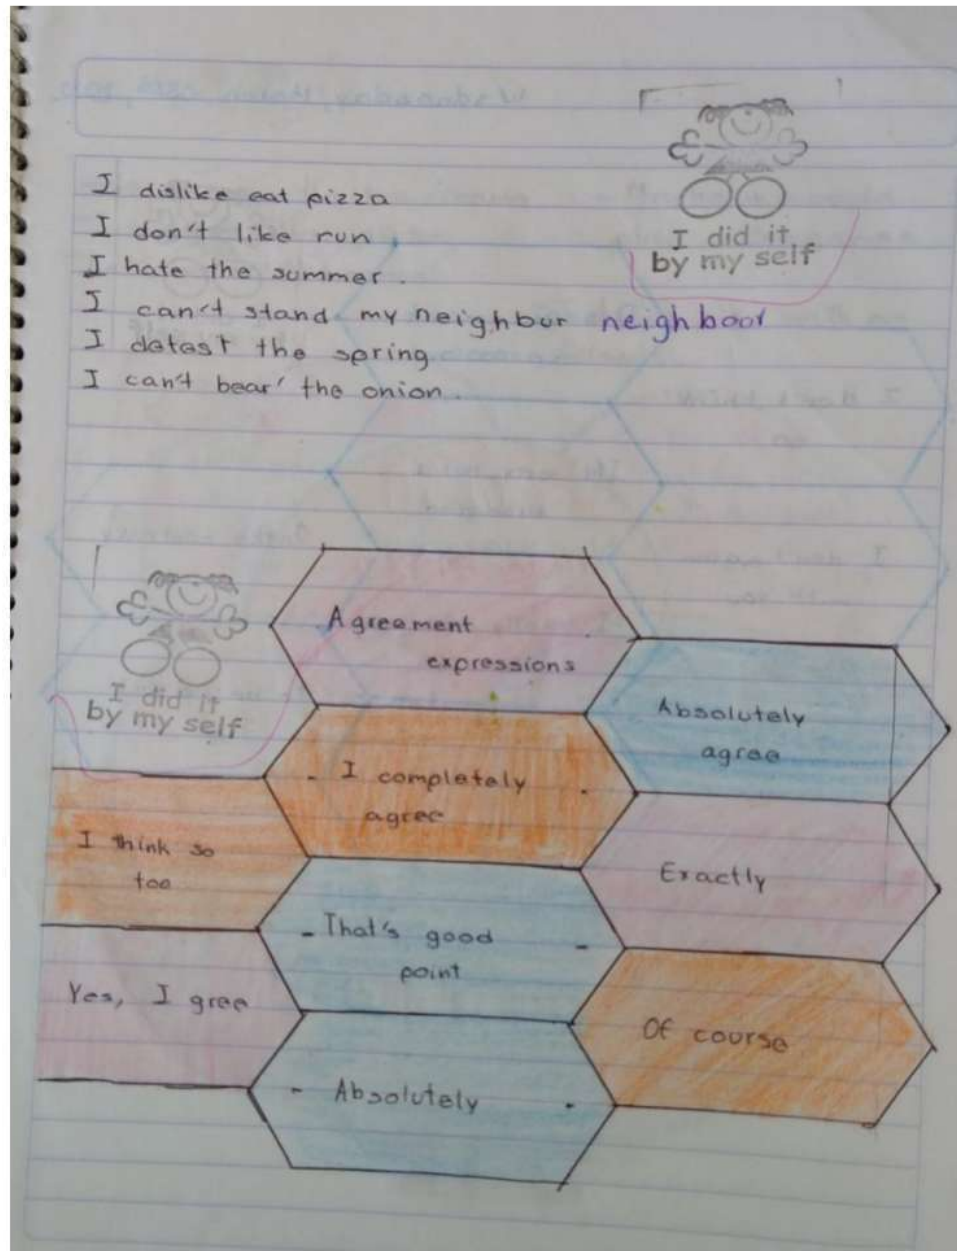 I did it
by my self
I dislike eat pizza
I don't like run
I hate the summer.
I can't stand my neighbur neighboor
I detest the spring
I can't bear' the onion.
I did it
by my self
Agreement
expressions
Absolutely
agree
- I completely
agree
I think so
too
Exactly
- That's good -
point
Yes, I gree
Of course
- Absolutely